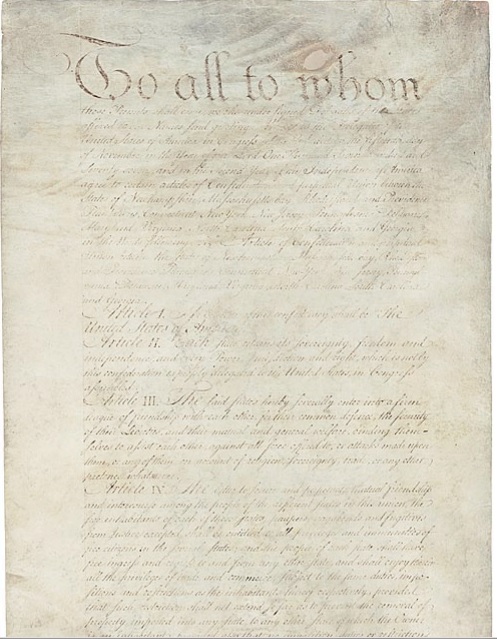 To all to whom
these Presents shall come, we the under signed
affixed to our Names send greeting.
United States of America in Congress the fifteenth day
of November in the Year of our Lord One Thousand Seven Hundred and
Seventy seven, and in the Second Year of the Independence of America
agree to certain articles of Confederation and perpetual Union between the
States of Newhampshire, Massachusetts-bay, Rhodeisland and Providence
Plantations, Connecticut, New York, New Jersey, Pennsylvania, Delaware,
Maryland, Virginia, North-Carolina, South-Carolina and Georgia
in the Words following, viz. Articles of Confederation and perpetual
Union between the States of Newhampshire, Massachusetts-bay, Rhodeisland
and Providence Plantations, Connecticut, New-York, New-Jersey, Pennsyl-
vania, Delaware, Maryland, Virginia, North-Carolina, South-Carolina
and Georgia.
Article I. The Stile of this confederacy shall be "The
United States of America."
Article II. Each state retains its sovereignty, freedom and
independence, and every Power, Jurisdiction and right, which is not by
this confederation expressly delegated to the United States, in Congress
assembled.
Article III. The said states hereby severally enter into a firm
league of friendship with each other, for their common defence, the security
of their Liberties, and their mutual and general welfare, binding them-
selves to assist each other, against all force offered to, or attacks made upon
them, or any of them, on account of religion, sovereignty, trade, or any other
pretence whatever.
Article IV. The better to secure and perpetuate mutual friendship
and intercourse among the people of the different states in this union, the
free inhabitants of each of these states, paupers, vagabonds and fugitives
from Justice excepted, shall be entitled to all privileges and immunities of
free citizens in the several states; and the people of each state shall have
free ingress and regress to and from any other state, and shall enjoy therein
all the privileges of trade and commerce, subject to the same duties, impo-
sitions and restrictions as the inhabitants thereof respectively, provided
that such restriction shall not extend so far as to prevent the removal of
property imported into any state, to any other state of which the Owner
is an inhabitant; provided also that no imposition, duties or restriction